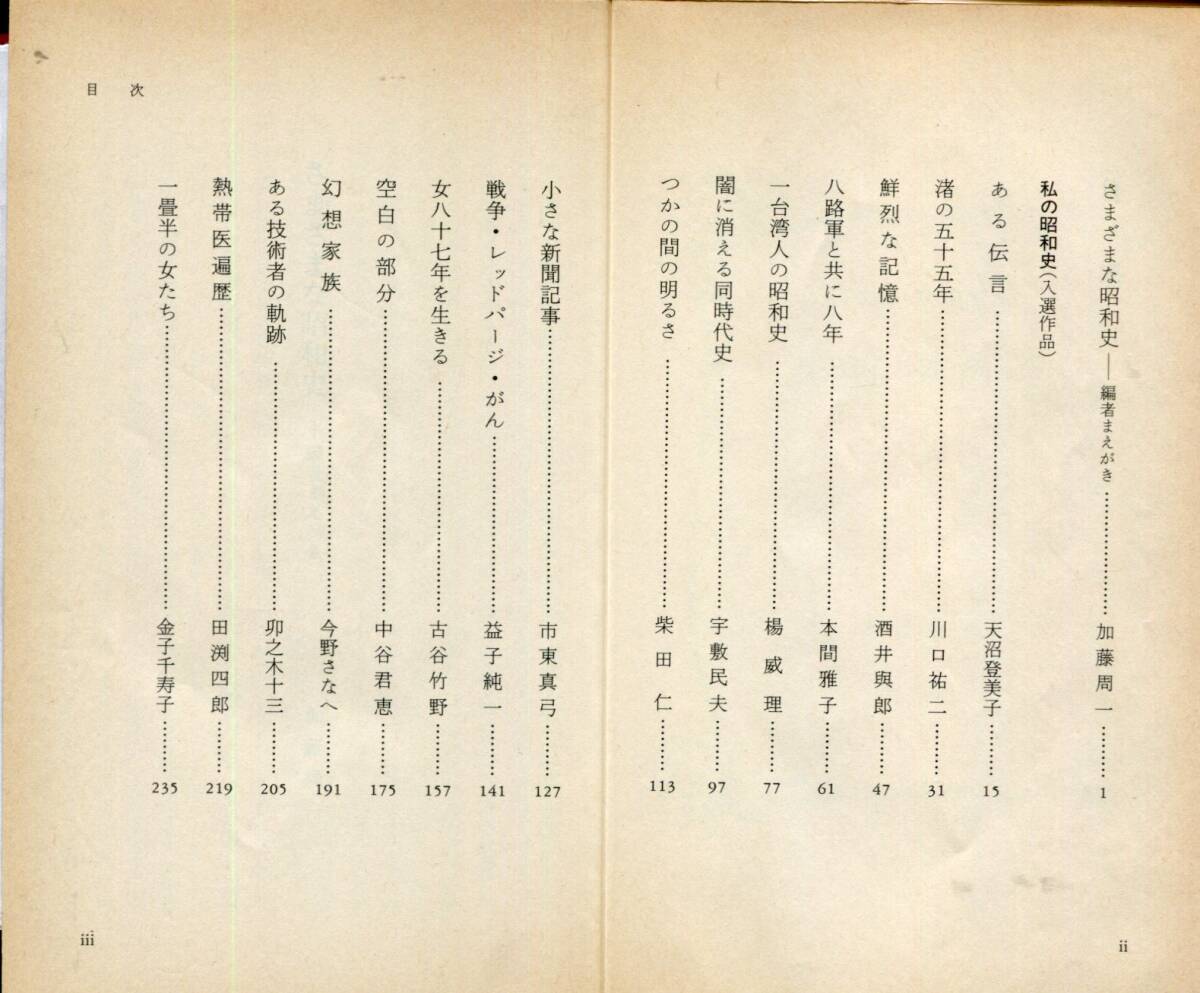 さまざまな昭和史——編者まえがき……………加藤周一………1
私の昭和史(入選作品)
ある伝言……………天沼登美子………15
渚の五十五年……………川口祐二………31
鮮烈な記憶……………酒井與郎………47
八路軍と共に八年……………本間雅子………61
一台湾人の昭和史……………楊威理………77
闇に消える同時代史……………宇敷民夫………97
つかの間の明るさ……………柴田仁………113
ii
目次
小さな新聞記事……………市東真弓………127
戦争・レッドパージ・がん……………益子純一………141
女八十七年を生きる……………古谷竹野………157
空白の部分……………中谷君恵………175
幻想家族……………今野さなへ………191
ある技術者の軌跡……………卯之木十三………205
熱帯医遍歴……………田渕四郎………219
一畳半の女たち……………金子千寿子………235
iii